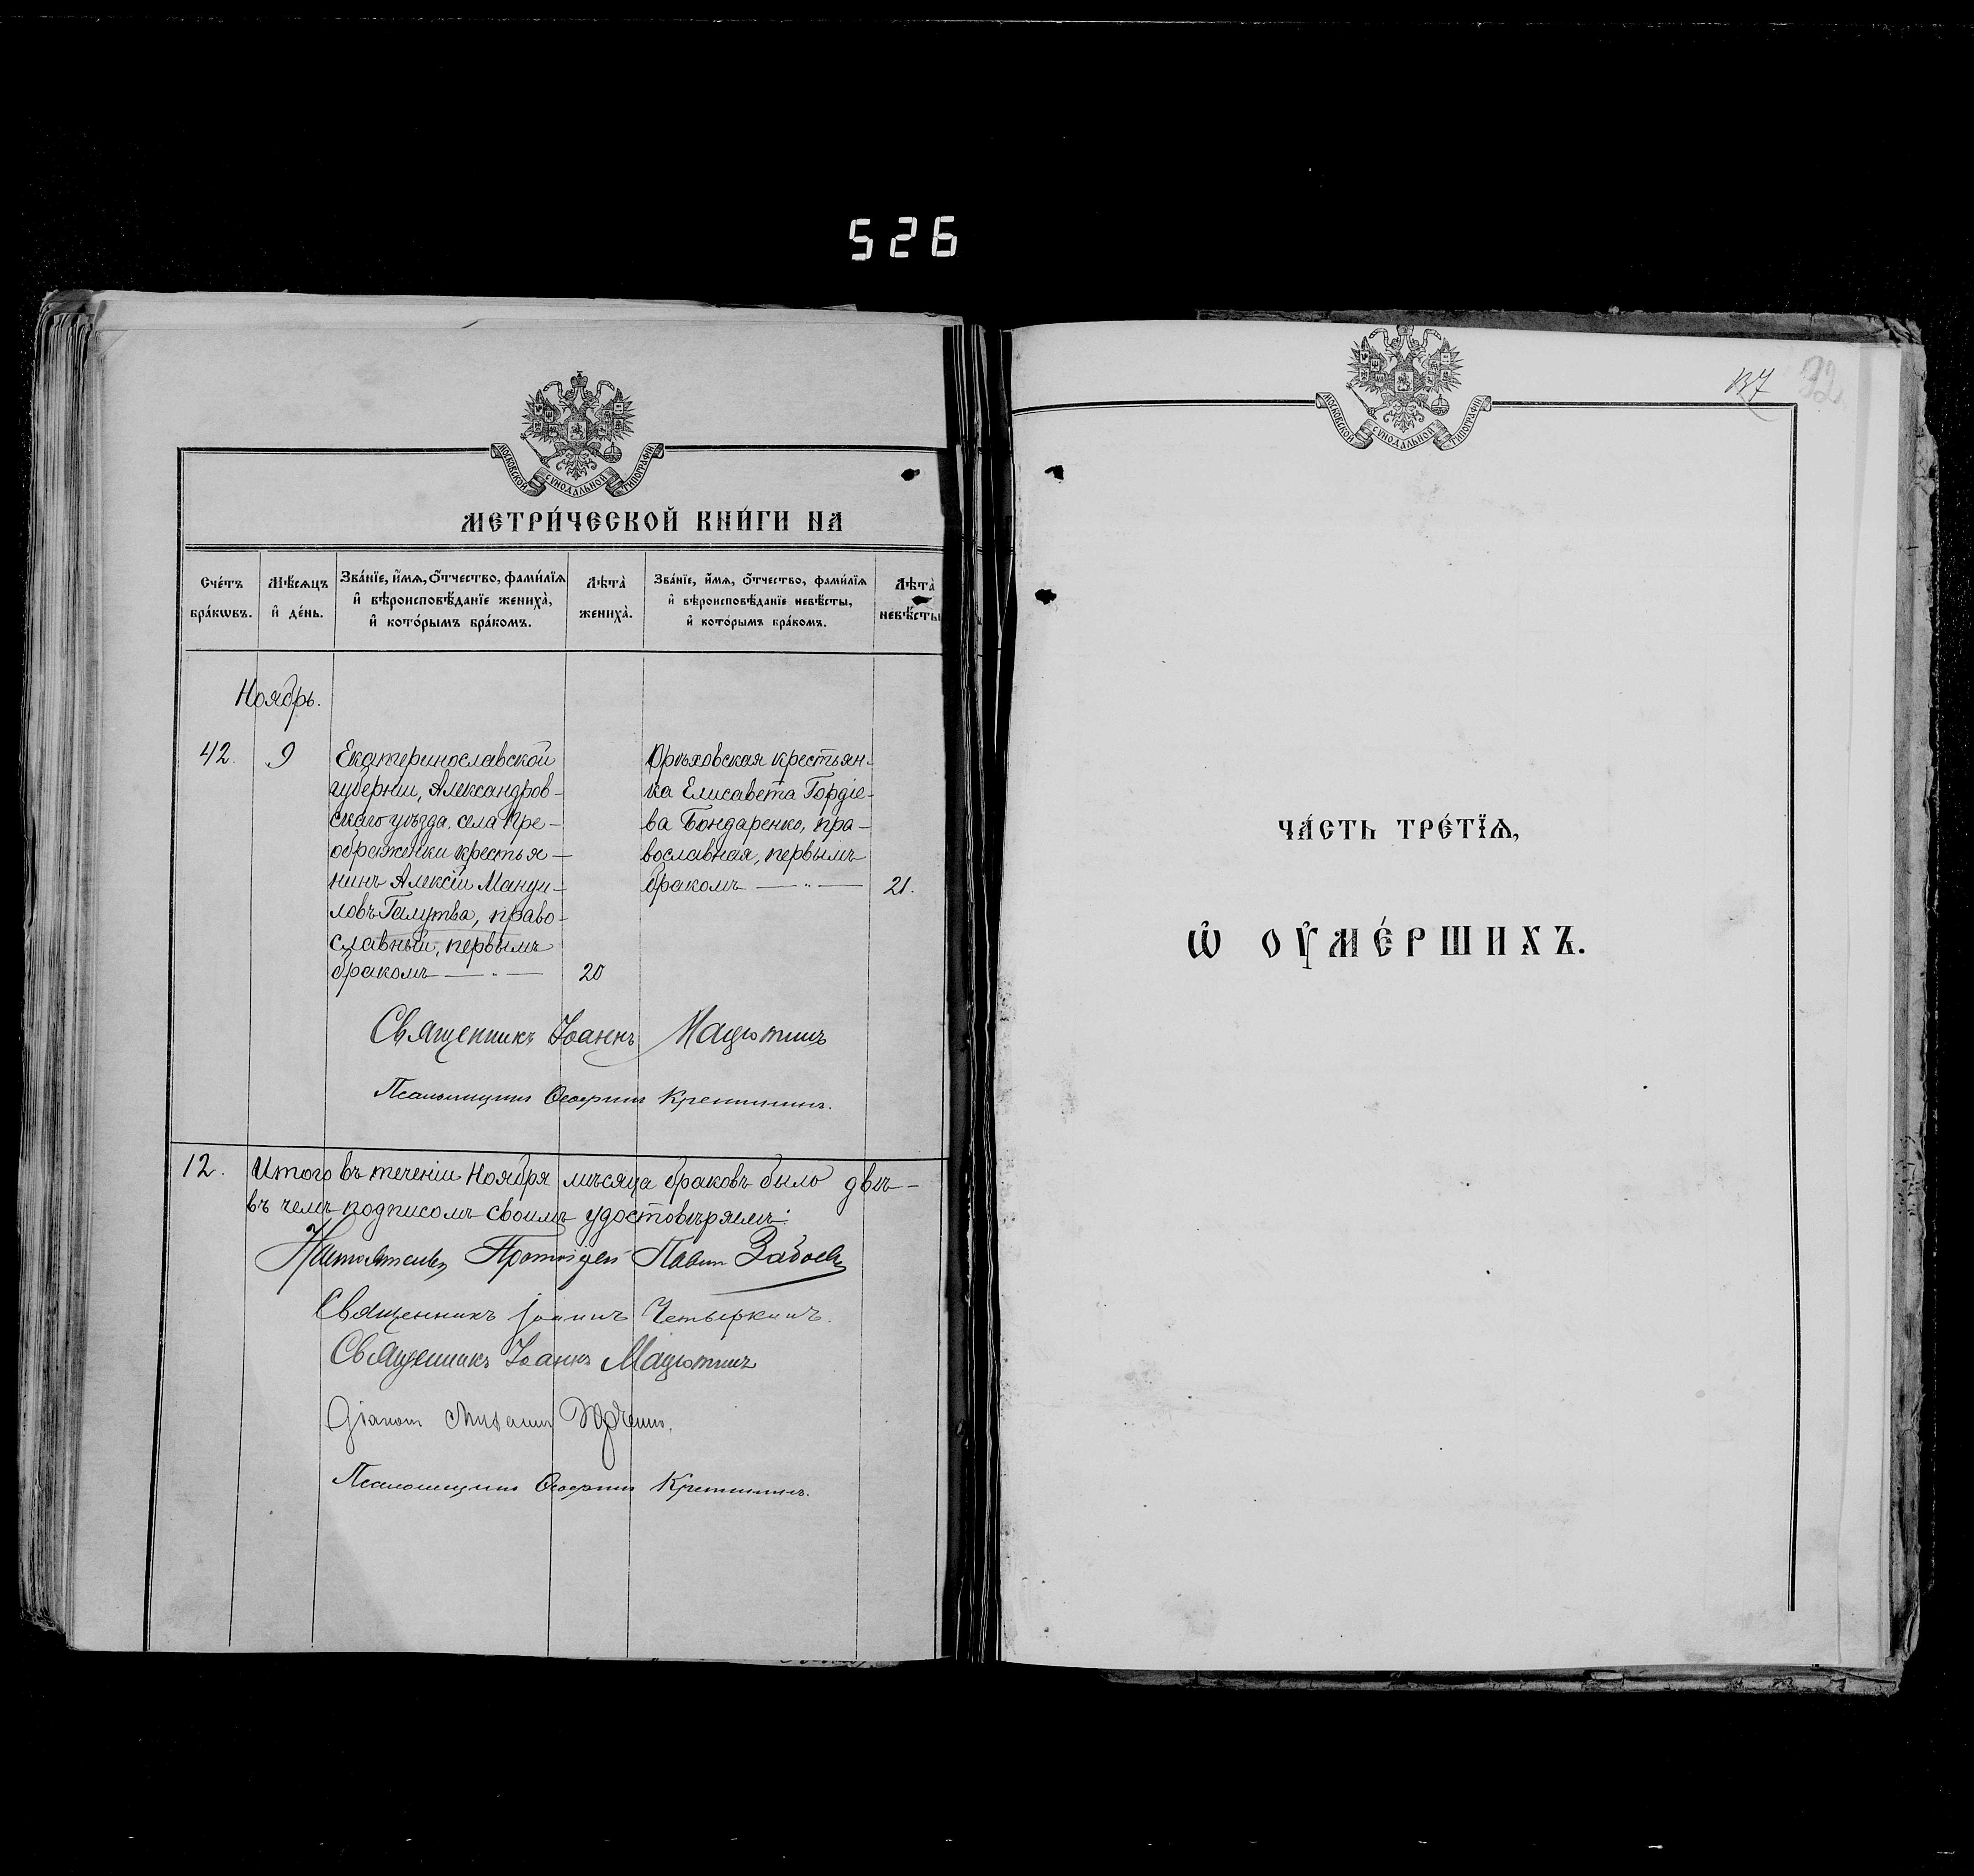 526
МОСКОВСКОЙ СѴНОДАЛЬНОЙ ТИПОГРАФІИ
МЕТРИ́ЧЕСКОЙ КНИ́ГИ НА
Сче́тъ бра́кѡвъ.
Мѣ́сѧцъ и҆ де́нь.
Зва́нїе, и҆́мѧ, ѻ҆́тчество, фами́лїѧ
и҆ вѣроисповѣ́данїе жениха̀,
и҆ кото́рымъ бра́комъ.
Лѣта̀ жениха̀.
Зва́нїе, и҆́мѧ, ѻ҆́тчество, фами́лїѧ
и҆ вѣроисповѣ́данїе невѣ́сты,
и҆ кото́рымъ бра́комъ.
Лѣта̀ невѣ́сты
Ноябрь.
42. 9
Екатеринославской
губернiи, Александров-
скаго уѣзда, села Пре-
ображенки крестья-
нинъ Алексiй Мануи-
ловъ Галутва, право-
славный, первымъ
бракомъ — " — 20
Орѣховская крестьян-
ка Елисавета Гордiе-
ва Бондаренко, пра-
вославная, первымъ
бракомъ — " — 21.
Священникъ Іоаннъ Мацютинъ
Псаломщикъ
12. Итого въ теченiи Ноября мѣсяца браковъ было двѣ-
въ чемъ подписомъ своимъ удостовѣряемъ:
Настоятель, Протоіерей Павелъ
Священникъ Іоаннъ Четыркинъ.
Священникъ Іоаннъ Мацютинъ
Діаконъ Михаилъ
Псаломщикъ
МОСКОВСКОЙ СѴНОДАЛЬНОЙ ТИПОГРАФІИ
137
ЧА́СТЬ ТРЕ́ТЇѦ,
Ѡ҆ ОУ҆МЕ́РШИХЪ.